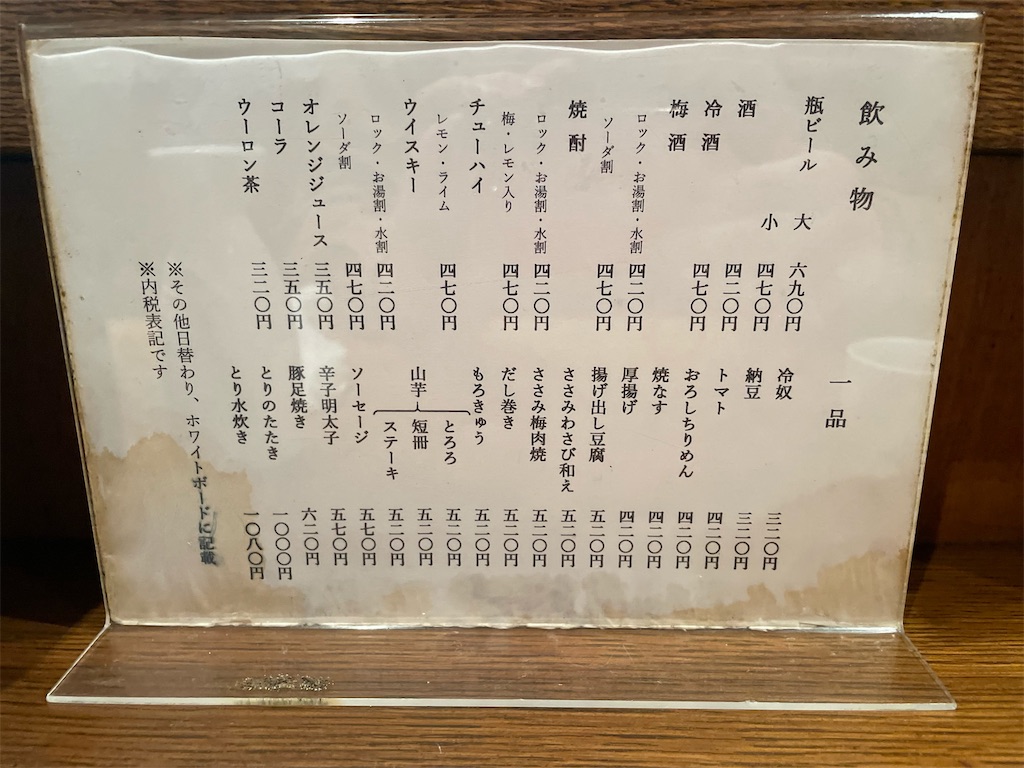 飲み物
瓶ビール 大 六九〇円
小 四七〇円
酒 四二〇円
冷酒 四七〇円
梅酒
ロック・お湯割・水割 四二〇円
ソーダ割 四七〇円
焼酎
ロック・お湯割・水割 四二〇円
梅・レモン入り 四七〇円
チューハイ
レモン・ライム 四七〇円
ウイスキー
ロック・お湯割・水割 四二〇円
ソーダ割 四七〇円
オレンジジュース 三五〇円
コーラ 三五〇円
ウーロン茶 三二〇円
一品
冷奴 三二〇円
納豆 三二〇円
トマト 四二〇円
おろしちりめん 四二〇円
焼なす 四二〇円
厚揚げ 四二〇円
揚げ出し豆腐 五二〇円
ささみわさび和え 五二〇円
ささみ梅肉焼 五二〇円
だし巻き 五二〇円
もろきゅう 五二〇円
山芋
とろろ 五二〇円
短冊 五二〇円
ステーキ 五二〇円
ソーセージ 五七〇円
辛子明太子 五七〇円
豚足焼き 六二〇円
とりのたたき 一〇〇〇円
とり水炊き 一〇八〇円
※その他日替わり、ホワイトボードに記載
※内税表記です